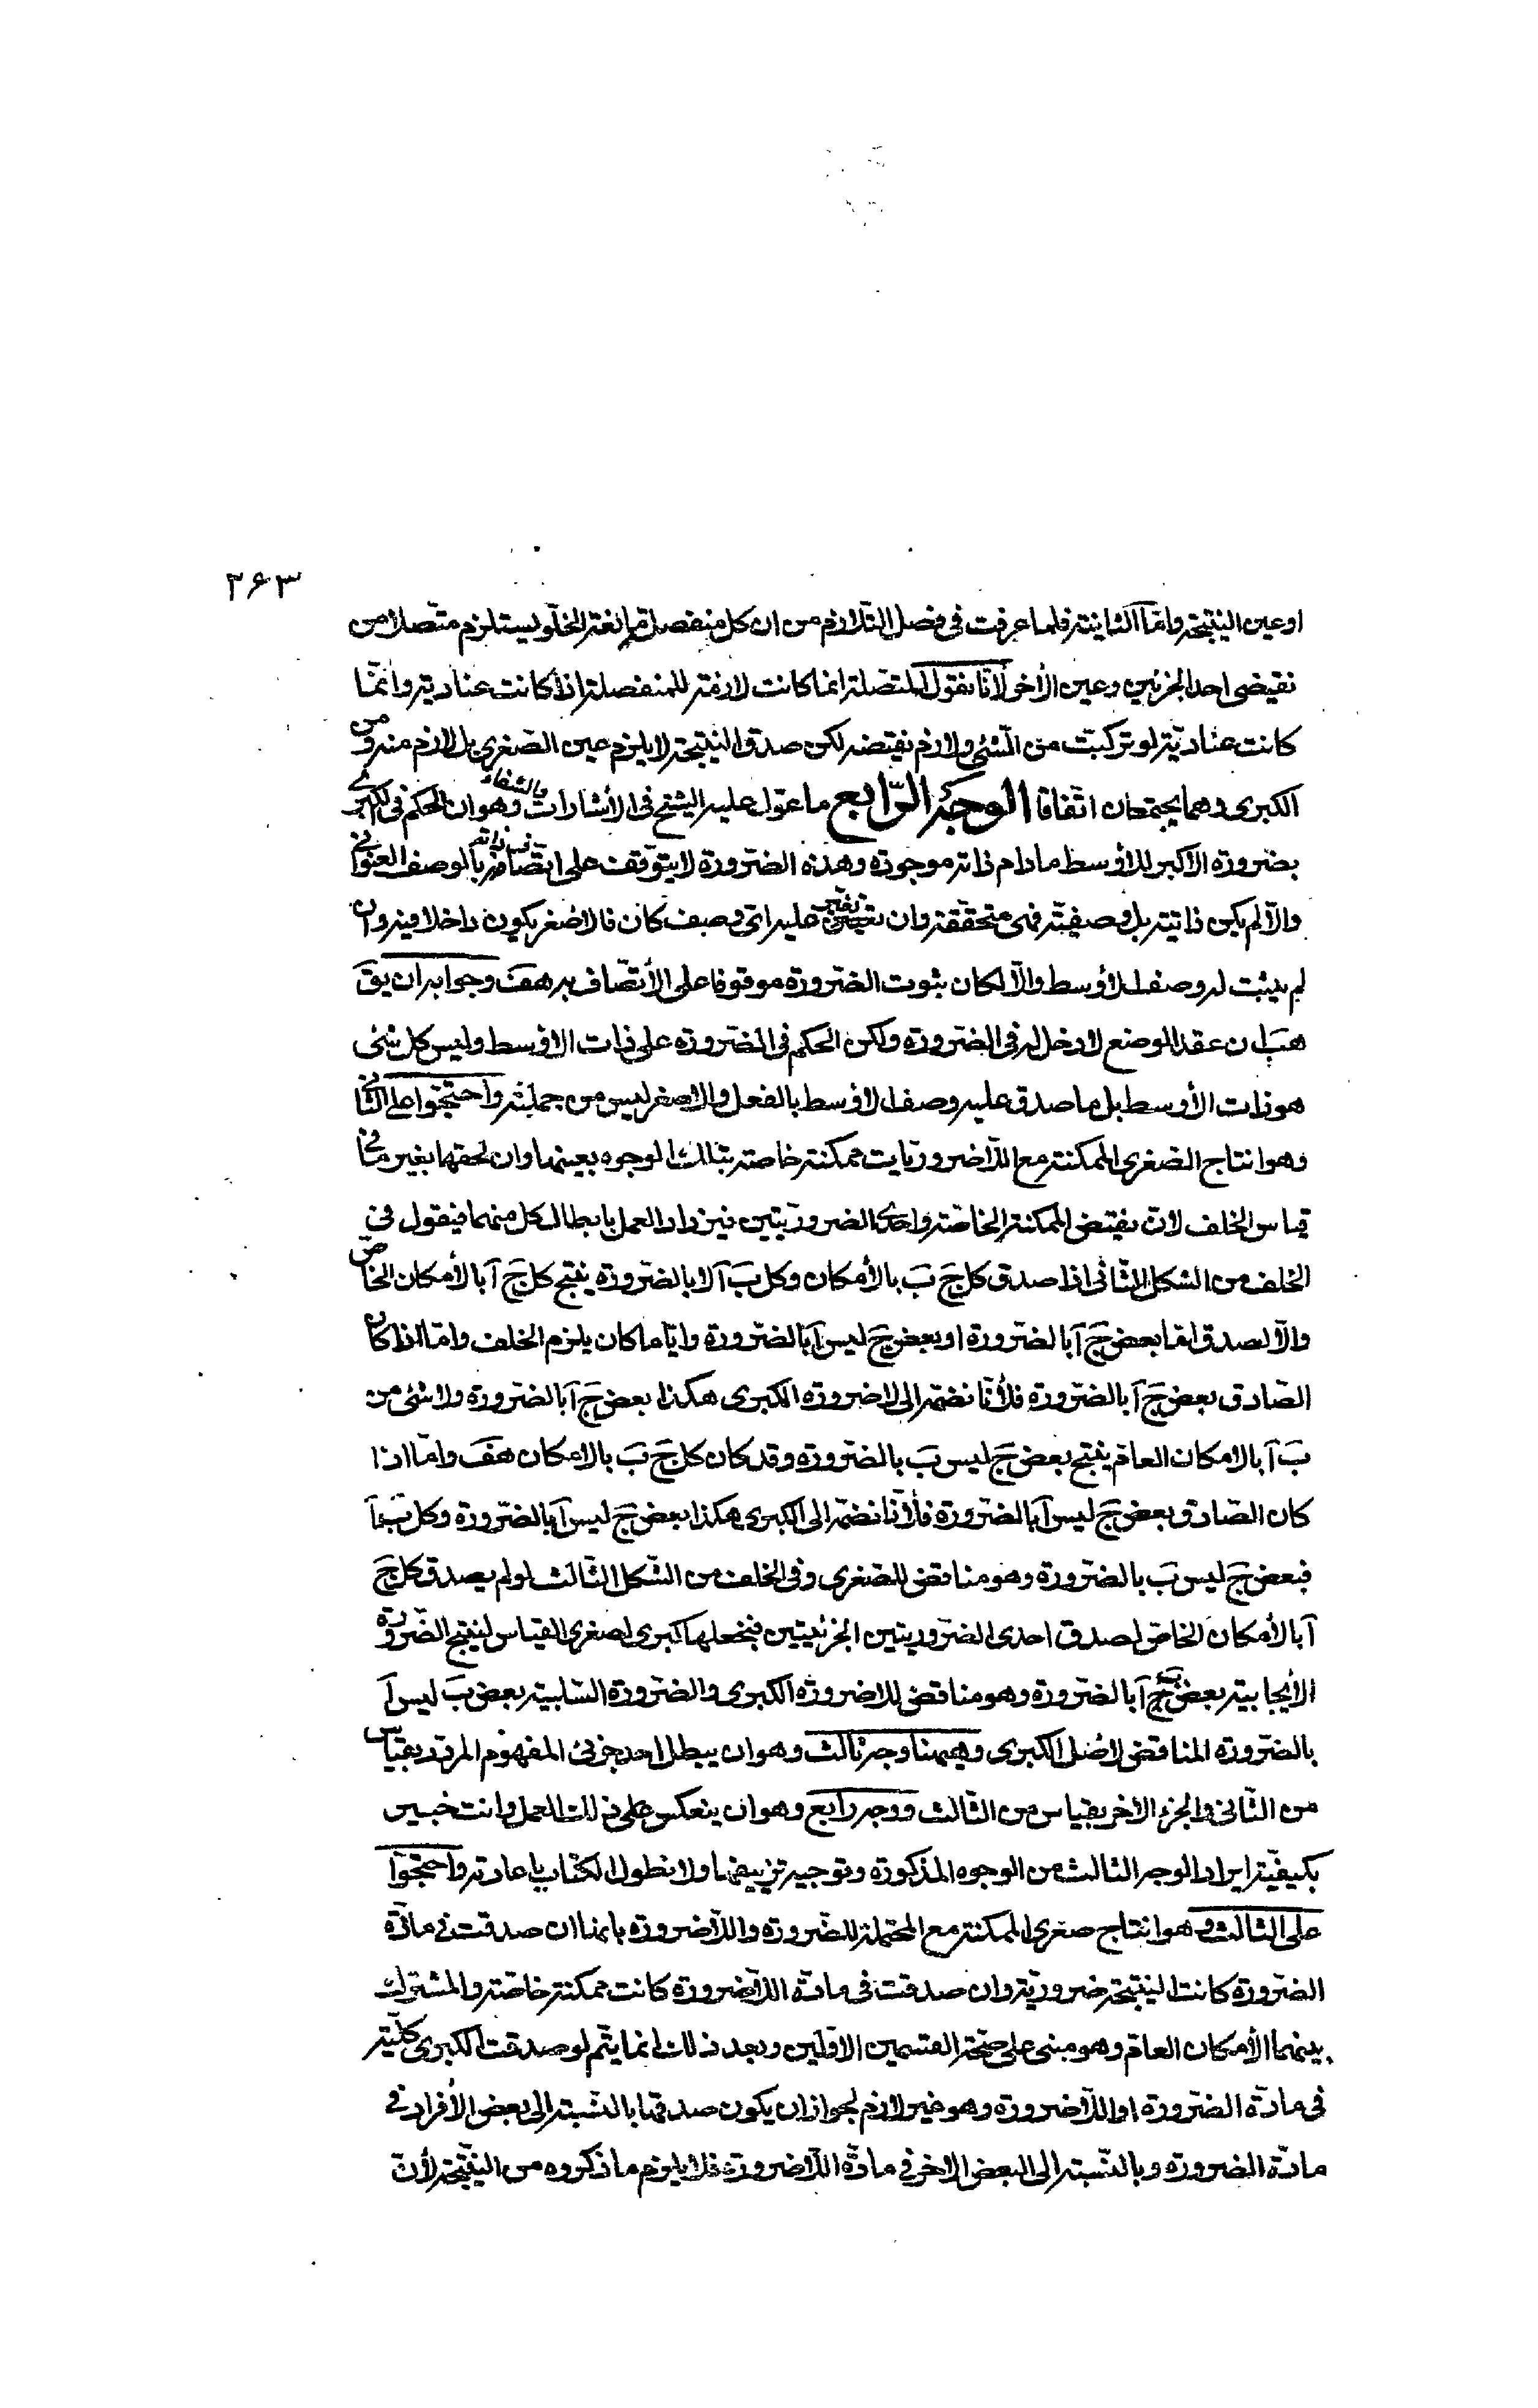 ۲۶۳
او عين النتيجة وامّا الثانية فلما عرفت فى فصل التلازم من ان كل منفصلة مانعة الخلو يستلزم متّصلة من
نقيضى احد الجزئين وعين الأخر لانّا نقول المتصلة انما كانت لازمة للمنفصلة اذا كانت عنادية وانّما
كانت عناديّة لو تركبت من الشئ ولازم نقيضه لكن صدق النتيجة لا يلزم عين الصّغرى بل لازم منه ومن
الكبرى وهما يجتمعان اتّفاقا الوجه الرّابع ما عوّل عليه الشيخ فى الأشارات والشفاء وهو ان الحكم فى الكبرى
بضرورة الاكبر للاوسط مادام ذاته موجودة وهذه الضرورة لا يتوقف على اتصاف ذاته بالوصف العنوانى
والّا لم يكن ذاتية بل وصفيّة فهى متحققة وان تغيّر عليه اىّ وصف كان فالاصغر يكون داخلا فيه وان
لم يثبت له وصف الاوسط والّا لكان ثبوت الضّرورة موقوفا على الأتّصاف به هف وجوابه ان يق
هب ان عقد الوضع لا دخل له فى الضّرورة ولكن الحكم فى الضّرورة على ذات الاوسط وليس كل شئ
هو ذات الأوسط بل ما صدق عليه وصف الاوسط بالفعل والاصغر ليس من جملته واحتجّوا على الثانى
وهو انتاج الصّغرى الممكنة مع اللّاضروريات ممكنة خاصة بتلك الوجوه بعينها وان لحقها تغير ما فى
قياس الخلف لانّ نقيض الممكنة الخاصّة واحدى الضروريّتين فيزداد العمل بابطال كل منهما فيقول فى
الخلف من الشكل الثّانى اذا صدق كل جَ بَ بالأمكان وكل بَ آ لا بالضّرورة ينتج كل جَ آ بالأمكان الخاصّ
والّا لصدق امّا بعض جَ آ بالضّرورة او بعض جَ ليس آ بالضّرورة وايّا ما كان يلزم الخلف وامّا اذا كان
الصّادق بعض جَ آ بالضّرورة فلأنّا نضمّه الى لا ضرورة الكبرى هكذا بعض جَ آ بالضّرورة ولا شئ من
بَ آ بالامكان العام ينتج بعض جَ ليس بَ بالضّرورة وقد كان كل جَ بَ بالامكان هف وامّا اذا
كان الصّادق بعض جَ ليس آ بالضّرورة فلأنّا نضمّه الى الكبرى هكذا بعض جَ ليس آ بالضّرورة وكل بَ آ
فبعض جَ ليس بَ بالضّرورة وهو مناقض للصّغرى وفى الخلف من الشّكل الثّالث لو لم يصدق كل جَ
آ بالأمكان الخاصّ لصدق احدى الضّروريتين الجزئيتين فنجعلها كبرى لصغرى القياس لينتج الضّرورة
الأيجابية بعض بَ آ بالضّرورة وهو مناقض للاضرورة الكبرى والضّرورة السّلبية بعض بَ ليس آ
بالضّرورة المناقض لاصل الكبرى وهيهنا وجه ثالث وهو ان يبطل احد جزئى المفهوم المردّد بقياس
من الثّانى والجزء الاخر بقياس من الثّالث ووجه رابع وهو ان ينعكس على ذلك العمل وانت خبير
بكيفيّة ايراد الوجه الثالث من الوجوه المذكورة وتوجيه تزييفها ولا نطول الكتاب باعادته واحتجّوا
على الثالث وهو انتاج صغرى الممكنة مع المحتملة للضّرورة واللّاضرورة بانها ان صدقت فى مادّة
الضّرورة كانت النتيجة ضروريّة وان صدقت فى مادّة اللّاضرورة كانت ممكنة خاصّة والمشترك
بينهما الأمكان العام وهو مبنى على صحّة القسمين الاوّلين وبعد ذلك انما يتّم لو صدقت الكبرى كلّية
فى مادّة الضّرورة او اللّاضرورة وهو غير لازم لجواز ان يكون صدقها بالنّسبة الى بعض الأفراد فى
مادّة الضرورة وبالنّسبة الى البعض الاخر فى مادّة اللّاضرورة فلا يلزم ما ذكروه من النتيجة لأنّ